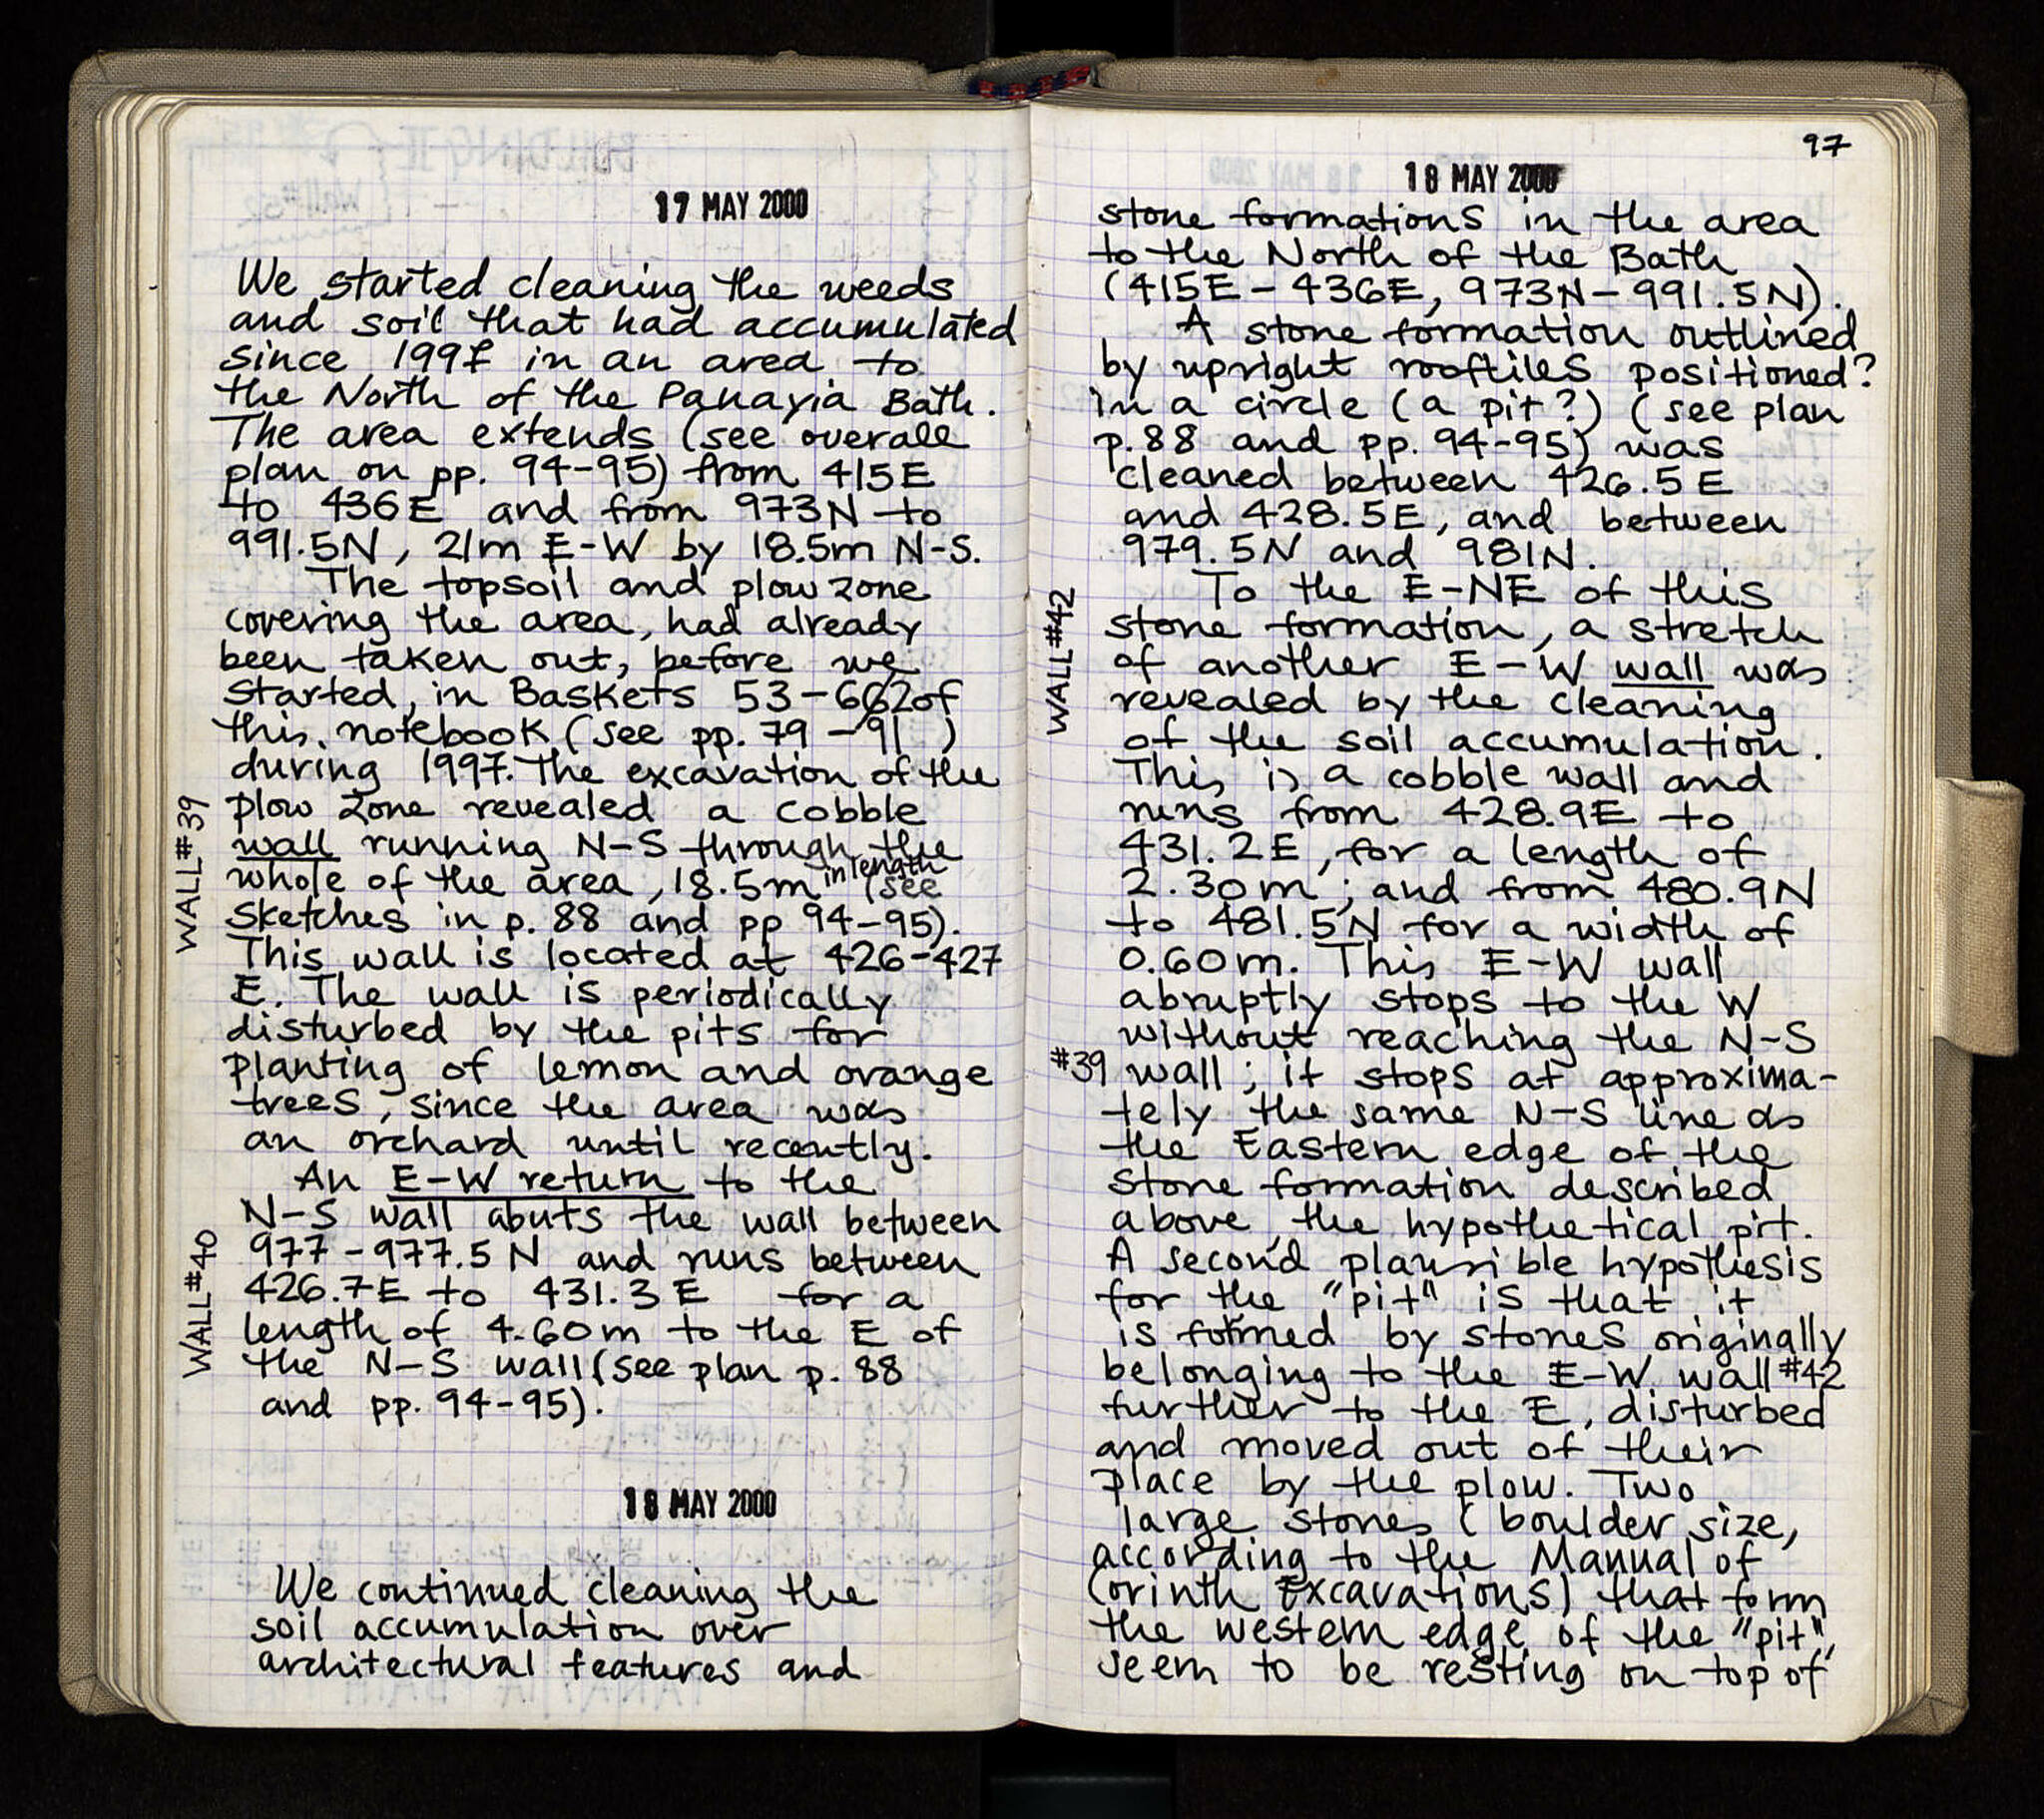 17 MAY 2000
We started cleaning the weeds
and soil that had accumulated
since 1997 in an area to
the North of the Panayia Bath.
The area extends (see overall
plan on pp. 94-95) from 415E
to 436E and from 973N to
991.5N, 21m E-W by 18.5m N-S.
The topsoil and plow zone
covering the area, had already
been taken out, before we
started, in Baskets 53-62 of
this notebook (see pp. 79-91)
during 1997. The excavation of the
plow zone revealed a cobble
WALL #39
wall running N-S through the
whole of the area, 18.5m in length (see
sketches in p. 88 and pp 94-95).
This wall is located at 426-427
E. The wall is periodically
disturbed by the pits for
planting of lemon and orange
trees, since the area was
an orchard until recently.
An E-W return to the
N-S wall abuts the wall between
WALL #40
977-977.5N and runs between
426.7E to 431.3E for a
length of 4.60m to the E of
the N-S wall (see plan p. 88
and pp. 94-95).
18 MAY 2000
We continued cleaning the
soil accumulation over
architectural features and
97
18 MAY 2000
stone formations in the area
to the North of the Bath
(415E-436E, 973N-991.5N).
A stone formation outlined
by upright rooftiles positioned?
in a circle (a pit?) (see plan
p.88 and pp. 94-95) was
cleaned between 426.5E
and 428.5E, and between
979.5N and 981N.
To the E-NE of this
WALL #42
stone formation, a stretch
of another E-W wall was
revealed by the cleaning
of the soil accumulation.
This is a cobble wall and
runs from 428.9E to
431.2E, for a length of
2.30m; and from 480.9N
to 481.5N for a width of
0.60m. This E-W wall
abruptly stops to the W
without reaching the N-S
#39 wall; it stops at approxima-
tely the same N-S line as
the Eastern edge of the
stone formation described
above, the hypothetical pit.
A second plausible hypothesis
for the "pit" is that it
is formed by stones originally
belonging to the E-W wall #42
further to the E, disturbed
and moved out of their
place by the plow. Two
large stones (boulder size,
according to the Manual of
Corinth Excavations) that form
the western edge of the "pit",
seem to be resting on top of